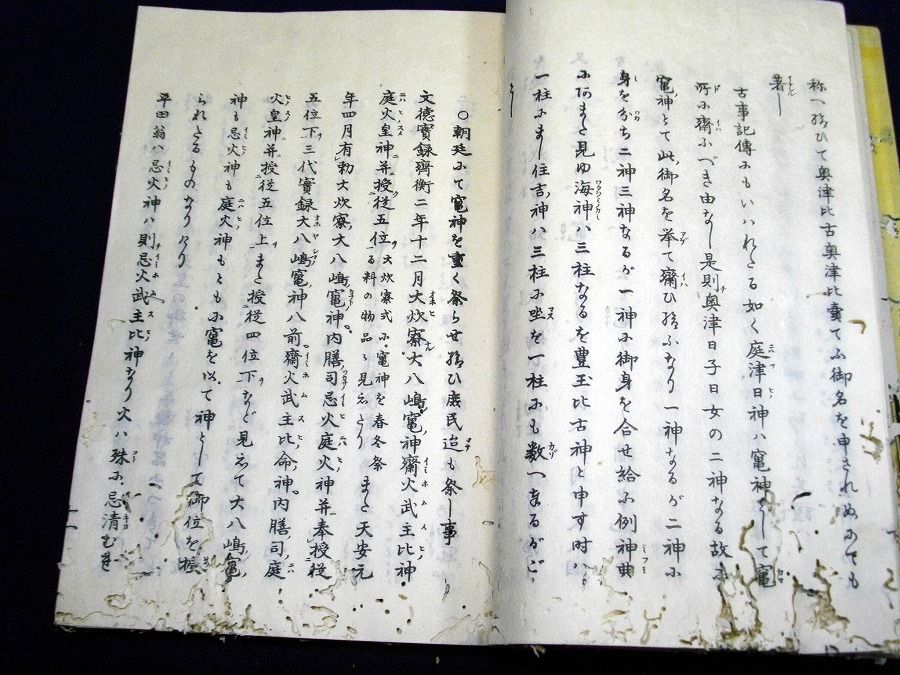 称へ給ひて奥津比古奥津比賣てふ御名を申されぬにても
著し
古事記傳にもいハれたる如く庭津日神ハ竈神として竈
所に齋ふべき由なし是則奥津日子日女の二神なる故に
竈神とて此御名を挙て齋ひ給ふなり一神なるが二神に
身を分ち二神三神なるが一神に御身を合せ給ふ例神典
にあまた見ゆ海神ハ三柱なるを豊玉比古神と申す時ハ
一柱にまし住吉神ハ三柱に坐を一柱にも数へ奉るがご
とし
〇朝廷にて竈神を重く祭らせ給ひ庶民迄も祭し事
文徳實録齊衡二年十二月大炊寮大八嶋竈神齋火武主比神
庭火皇神并授従五位大炊寮式に竈神を春冬祭る料の物品も見えたりまた天安元
年四月有勅大炊寮大八嶋竈神内膳司忌火庭火神并奉授従
五位下三代實録大八嶋竈神八前齋火武主比命神内膳司庭
火皇神并授従五位上また授従四位下など見えて大八嶋竈
神も忌火神も庭火神もともに竈を以て神として御位を授
られたるものなりけり
平田翁ハ忌火神ハ則忌火武主比神なり火ハ殊に忌清むべき